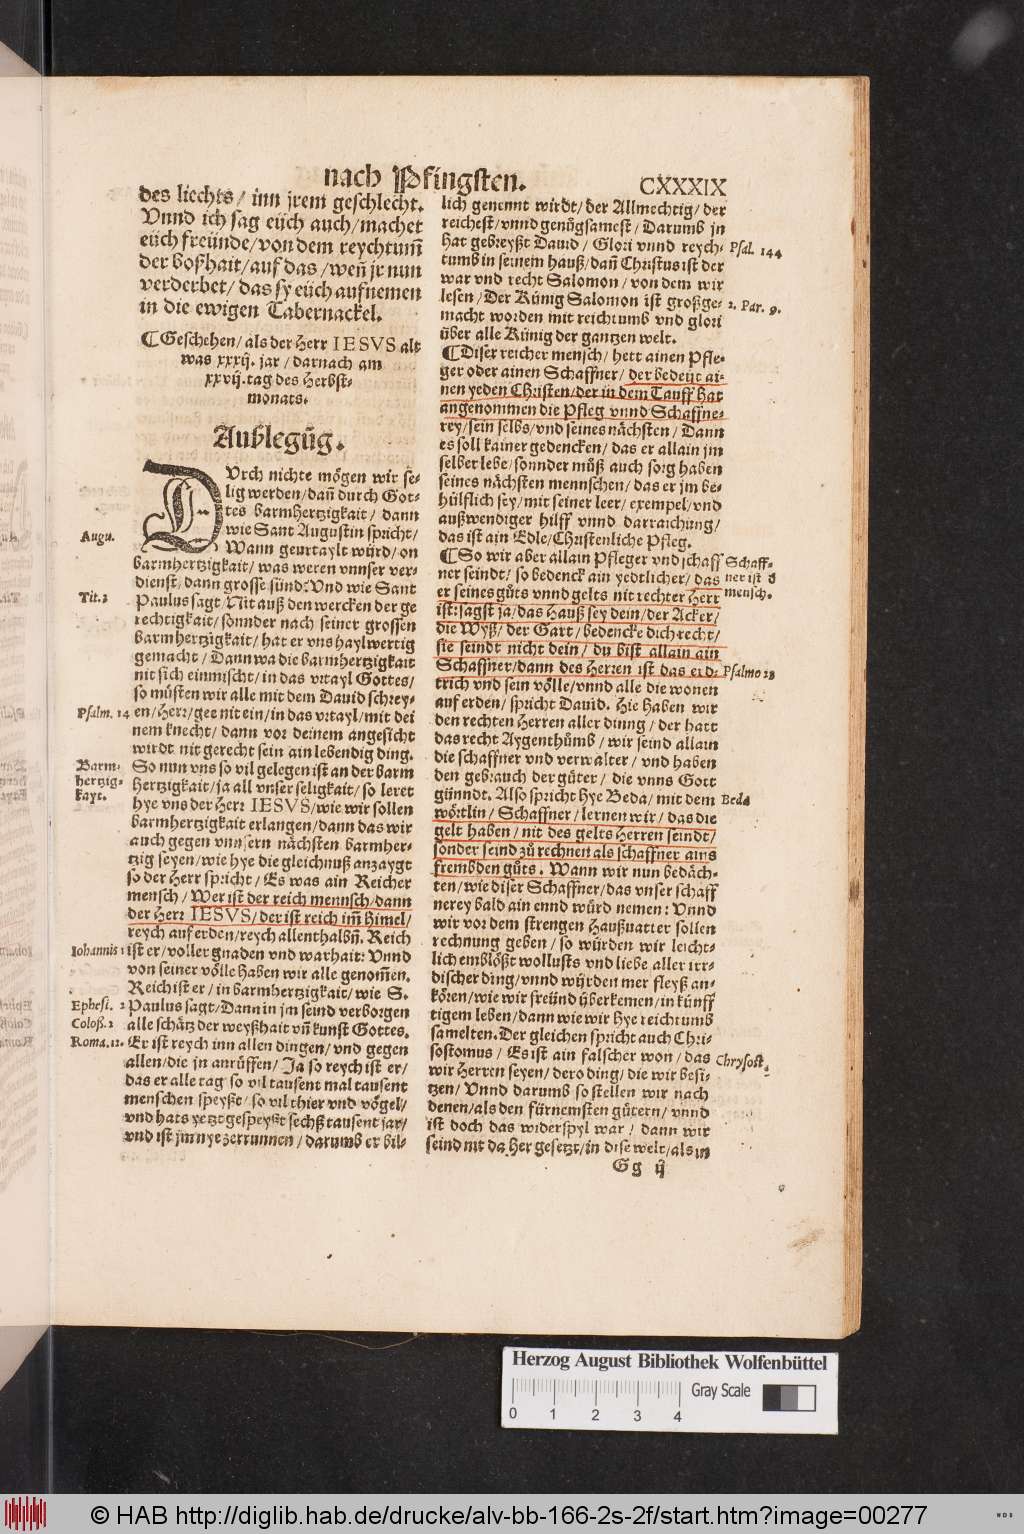 nach Pfingsten.
CXXXIX
des liechts / inn jrem geschlecht.
Vnnd ich sag eüch auch / machet
eüch freünde / von dem reychtum̃
der boßhait / auf das / weñ jr nun
verderbet / das sy eüch aufnemen
in die ewigen Tabernackel.
¶ Geschehen / als der Herr IESVS alt
was xxxij. jar / darnach am
xxvij. tag des Herbst-
monats.
Außlegũg.
DVrch nichte mögen wir se-
lig werden / dañ durch Got-
tes barmhertzigkait / dann
wie Sant Augustin spricht /
Augu.
Wann geurtaylt würd / on
barmhertzigkait / was weren vnnser ver-
dienst / dann grosse sünd: Vnd wie Sant
Tit. 3
Paulus sagt / Nit auß den wercken der ge
rechtigkait / sonnder nach seiner grossen
barmhertzigkait / hat er vns haylwertig
gemacht / Dann wa die barmhertzigkait
nit sich einmischt / in das vrtayl Gottes /
so müsten wir alle mit dem Dauid schrey-
Psalm. 14
en / Herr / gee nit ein / in das vrtayl / mit dei
nem knecht / dann vor deinem angesicht
wirdt nit gerecht sein ain lebendig ding.
Barm-
hertzig-
kayt.
So nun vns so vil gelegen ist an der barm
hertzigkait / ja all vnser seligkait / so leret
hye vns der Herr IESVS / wie wir sollen
barmhertzigkait erlangen / dann das wir
auch gegen vnnsern nächsten barmher-
tzig seyen / wie hye die gleichnuß anzaygt
so der Herr spricht / Es was ain Reicher
mensch / Wer ist der reich mennsch / dann
der Herr IESVS / der ist reich im̃ Himel /
reych auf erden / reych allenthalbñ. Reich
Iohannis 1
ist er / voller gnaden vnd warhait: Vnnd
von seiner völle haben wir alle genom̃en.
Reich ist er / in barmhertzigkait / wie S.
Ephesi. 2
Paulus sagt / Dann in jm seind verborgen
Coloß. 2
alle schätz der weyßhait vñ kunst Gottes.
Roma. 12.
Er ist reych inn allen dingen / vnd gegen
allen / die jn anrüffen / Ja so reych ist er /
das er alle tag so vil tausent mal tausent
menschen speyßt / so vil thier vnd vögel /
vnd hats yetzt gespeyßt sechß tausent jar /
vnd ist jm nye zerrunnen / darumb er bil-
lich genennt wirdt / der Allmechtig / der
reichest / vnnd genůgsamest / Darumb jn
hat gebreyßt Dauid / Glori vnnd reych-
Psal. 144
tumb in seinem hauß / dañ Christus ist der
war vnd recht Salomon / von dem wir
lesen / Der Künig Salomon ist großge-
2. Par. 9.
macht worden mit reichtumb vnd glori
über alle Künig der gantzen welt.
¶ Diser reicher mensch / hett ainen Pfle-
ger oder ainen Schaffner / der bedeüt ai-
nen yeden Christen / der in dem Tauff hat
angenommen die Pfleg vnnd Schaffne-
rey / sein selbs / vnd seines nächsten / Dann
es soll kainer gedencken / das er allain jm
selber lebe / sonnder můß auch sorg haben
seines nächsten mennschen / das er jm be-
hülflich sey / mit seiner leer / exempel / vnd
außwendiger hilff vnnd darraichung /
das ist ain Edle / Christenliche Pfleg.
¶ So wir aber allain Pfleger vnd schaff
Schaff-
ner ist d̕
mensch.
ner seindt / so bedenck ain yedtlicher / das
er seines gůts vnnd gelts nit rechter Herr
ist: sagst ja / das Hauß sey dein / der Acker /
die Wyß / der Gart / bedencke dich recht /
sie seindt nicht dein / du bist allain ain
Schaffner / dann des Herren ist das erd-
Psalmo 23
trich vnd sein völle / vnnd alle die wonen
auf erden / spricht Dauid. Hie haben wir
den rechten Herren aller dinng / der hatt
das recht Aygenthůmb / wir seind allain
die schaffner vnd verwalter / vnd haben
den gebrauch der güter / die vnns Gott
günndt. Also spricht hye Beda / mit dem
Beda
wörtlin / Schaffner / lernen wir / das die
gelt haben / nit des gelts Herren seindt /
sonder seind zů rechnen als schaffner ains
frembden gůts. Wann wir nun bedäch-
ten / wie diser Schaffner / das vnser schaff
nerey bald ain ennd würd nemen: Vnnd
wir vor dem strengen Haußuatter sollen
rechnung geben / so würden wir leicht-
lich emblößt wollusts vnd liebe aller irr-
discher ding / vnnd würden mer fleyß an-
kören / wie wir freünd überkemen / in künff
tigem leben / dann wie wir hye reichtumb
samelten. Der gleichen spricht auch Chri-
sostomus / Es ist ain falscher won / das
Chrysost.
wir Herren seyen / dero ding / die wir besi-
tzen / Vnnd darumb so stellen wir nach
denen / als den fürnemsten gütern / vnnd
ist doch das widerspyl war / dann wir
seind nit da her gesetzt / in dise welt / als in
Gg ij
Herzog August Bibliothek Wolfenbüttel
Gray Scale
0 1 2 3 4
© HAB http://diglib.hab.de/drucke/alv-bb-166-2s-2f/start.htm?image=00277